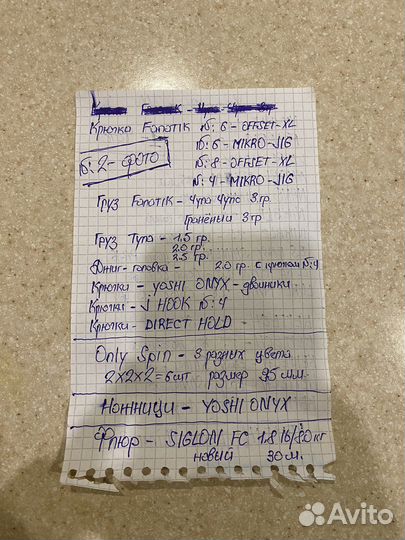 Крючки Fanatik №: 6 - OFFSET-XL
№: 6 - MIKRO-JIG
№: 2 - фото
№: 8 - OFFSET-XL
№: 4 - MIKRO-JIG
Груз Fanatik - Чупа Чупс 3 гр.
Гранёный 3 гр
Груз Тула - 1.5 гр.
2.0 гр.
2.5 гр.
Джиг-головка - 2.0 гр. с крюком №:4
Крючки - YOSHI ONYX - двойники
Крючки - J HOOK №: 4
Крючки - DIRECT HOLD
Only Spin - 3 разных цвета
2x2x2=6шт размер 35 мм.
Ножници - YOSHI ONYX
Флюр - SIGLON FC 1.8 lb/ кг
новый 30м.
Avito